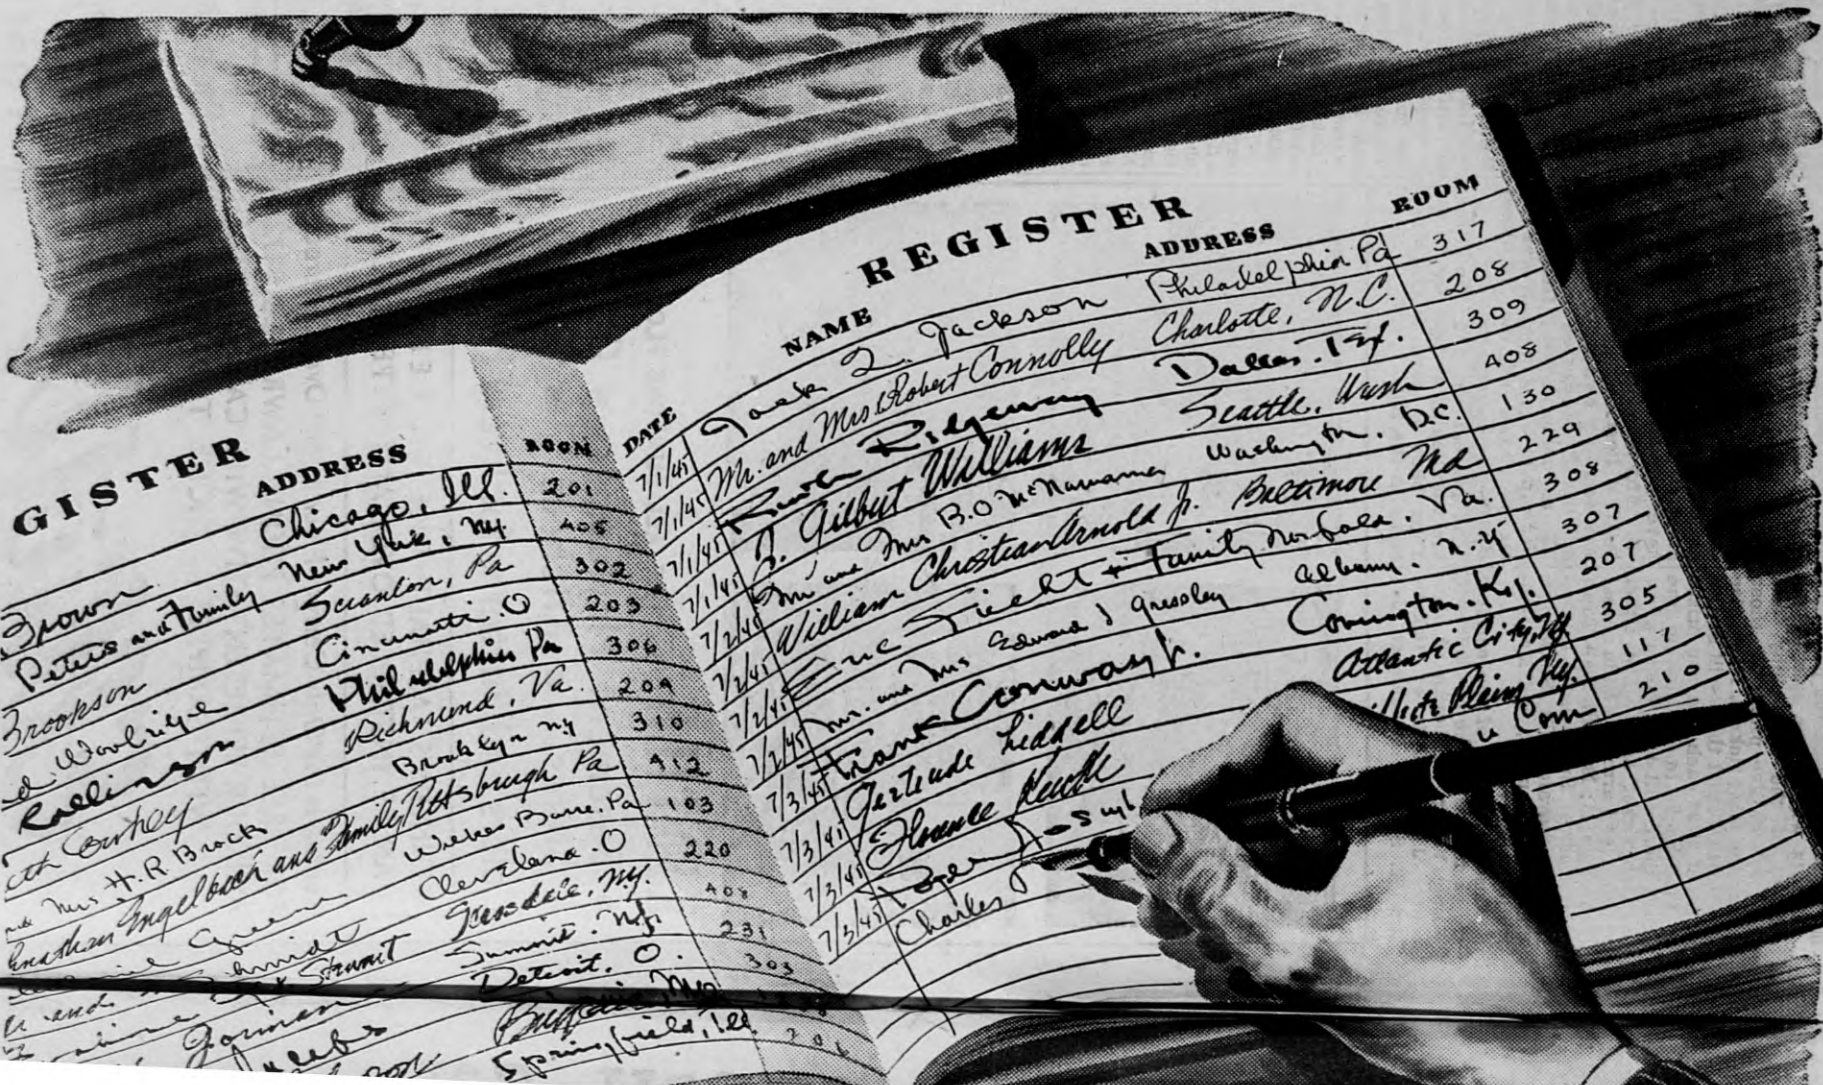 GISTER
ADDRESS ROOM
Brown Chicago, Ill. 201
Peters and Family New York, N.Y. 405
Brookson Scranton, Pa 302
Woolridge Cincinnatti. O 203
Rollinson Philadelphia Pa 306
Richmond, Va. 209
Mrs H. R. Brock Brooklyn N.Y 310
Engelbach and Family Pittsburgh Pa 412
Greene Wilkes Barre. Pa 103
Schmidt Cleveland. O 220
Strunt Scarsdale, N.Y. 408
Gorman Summit. N.J. 231
Jacobs Detroit, O. 303
Buffalo, N.Y.
Springfield, Ill. 206
REGISTER
DATE NAME ADDRESS ROOM
7/1/45 Jack Q. Jackson Philadelphia Pa 317
7/1/45 Mr. and Mrs Robert Connolly Charlotte, N.C. 208
7/1/45 Ruth Ridgeway Dallas. Tex. 309
7/1/45 J. Gilbert Williams Seattle, Wash 408
7/1/45 Mr and Mrs B. O McNamamer Washington, D.C. 130
7/2/45 William Christian Arnold Jr. Baltimore Md 229
7/2/45 Eric Fiecht + Family Norfolk. Va. 308
7/2/45 Mr. and Mrs Edward J Gressley Albany. N.Y 307
7/2/45 Frank Conway Jr. Covington. Ky. 207
7/3/45 Gertrude Liddell Atlantic City, NJ 305
7/3/45 Florence Plains N.Y. 117
7/3/45 Roger Conn 210
7/3/45 Charles